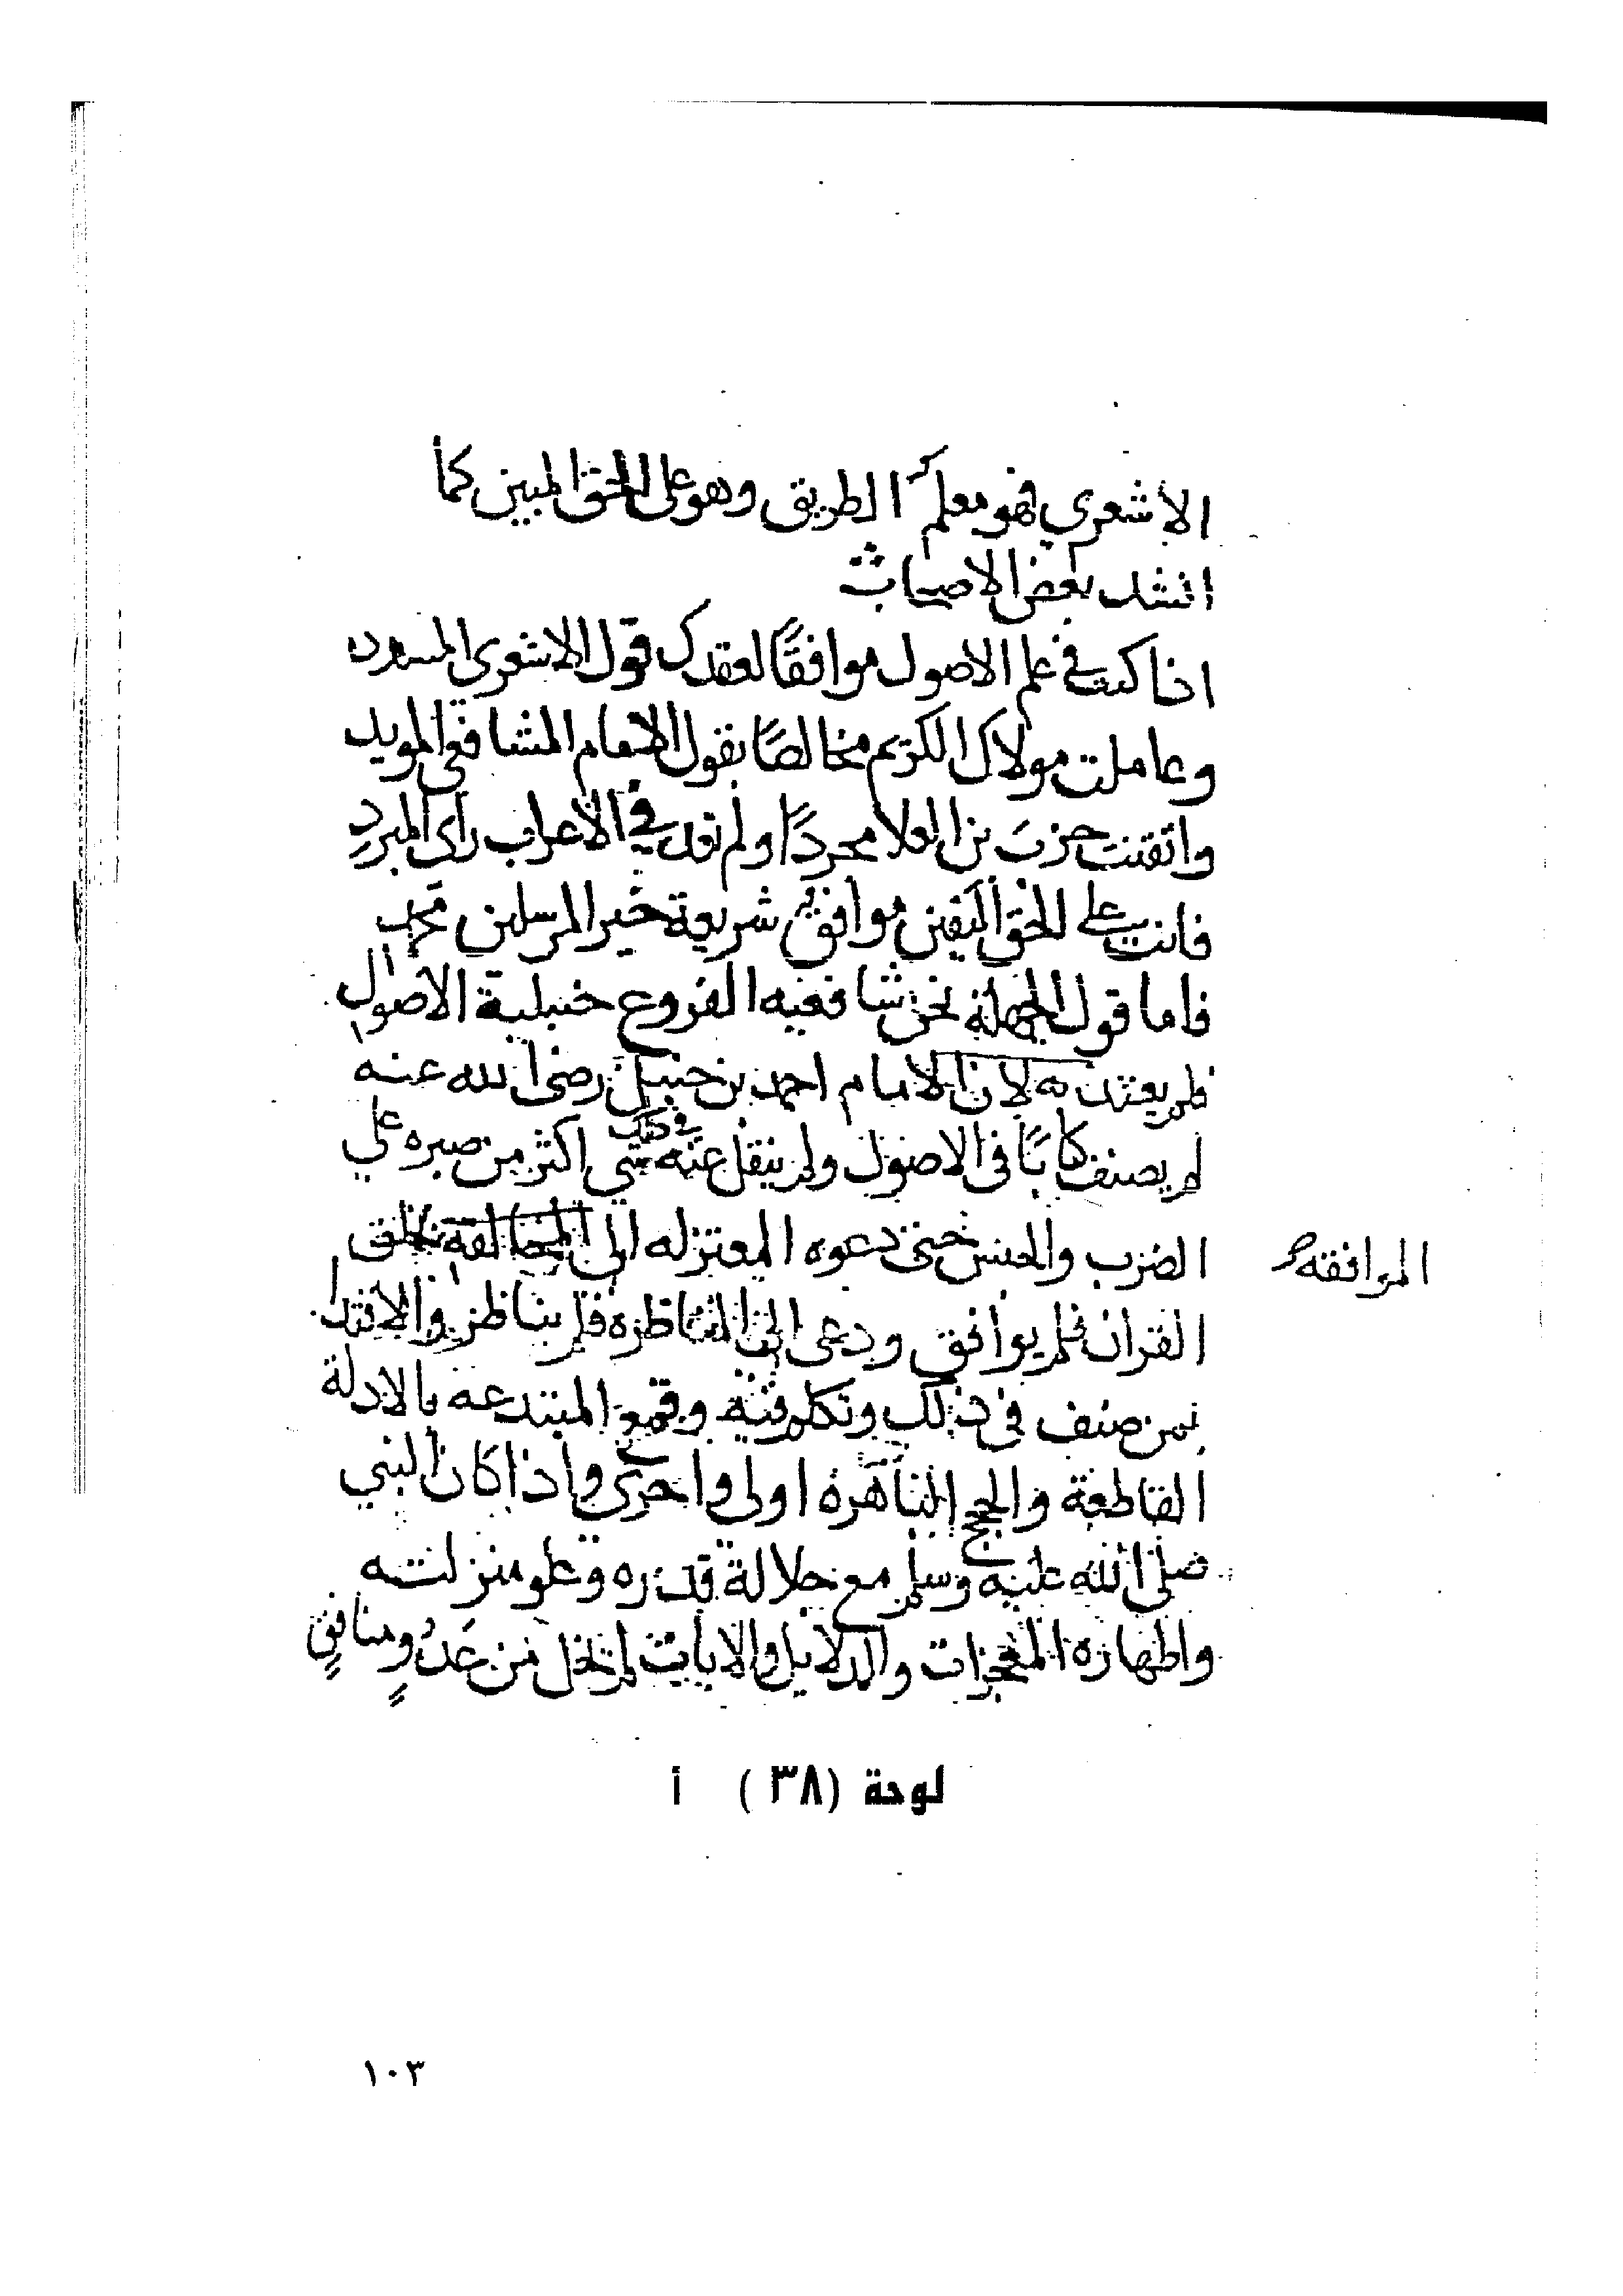 الاشعري فهو معلم الطريق وهو على الحق المبين كما
انشد بعض الاصحاب
اذا كنت في علم الاصول موافقًا لعقدك قول الاشعرى المسدد
وعاملت مولاك الكريم مخالصًا بقول الامام الشافعى المويد
واتقنت حزب بن العلا مجردًا ولم تعد في الاعراب راى المبردِ
فانت على الحق اليقين موافق شريعة خير المرسلين محمد
فاما قول الجهلة نحن شافعيه الفروع حنبلية الاصول
فلم يعتد به لان الامام احمد بن حنبل رضى الله عنه
لم يصنف كتابًا فى الاصول ولم ينقل عنه في ذلك شى اكثر من صبره على
الضرب والحبس حتى دعوه المعتزله الى المخالفة بخلق
الموافقه
القران فلم يوافق ودعى الى المناظرة فلم يناظر والاقتدا
بمن صنف فى ذلك وتكلم فيه وقمع المبتدعه بالادلة
القاطعة والحجج الباهرة اولى واحرى واذا كان النبي
صلى الله عليه وسلم مع جلالة قدره وعلو منزلته
واظهاره المعجزات والدلايل والايات لم تخل من عدوٍ ومنافقٍ
لوحة (٣٨) أ
١٠٣